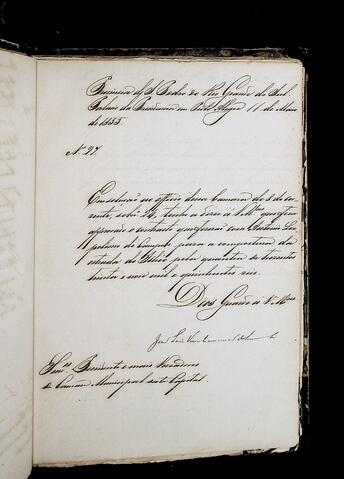 Provincia de S. Pedro do Rio Grande do Sul.
Palacio da Presidencia em Porto Alegre 11 de Maio
de 1855
N. 27.
Em solução ao officio dessa Camara de 8 do cor-
rente, sob n.º, tenho a dizer a V. M.ces que fica
approvado o contracto que firmou com Antonio Leo-
poldino de para a compostura da
estrada do pela quantia de trezentos
trinta e nove mil e quinhentos reis.
Deos Guarde a V. M.ces
Snr.es Presidente e mais Vereadores
da Camara Municipal desta Capital.